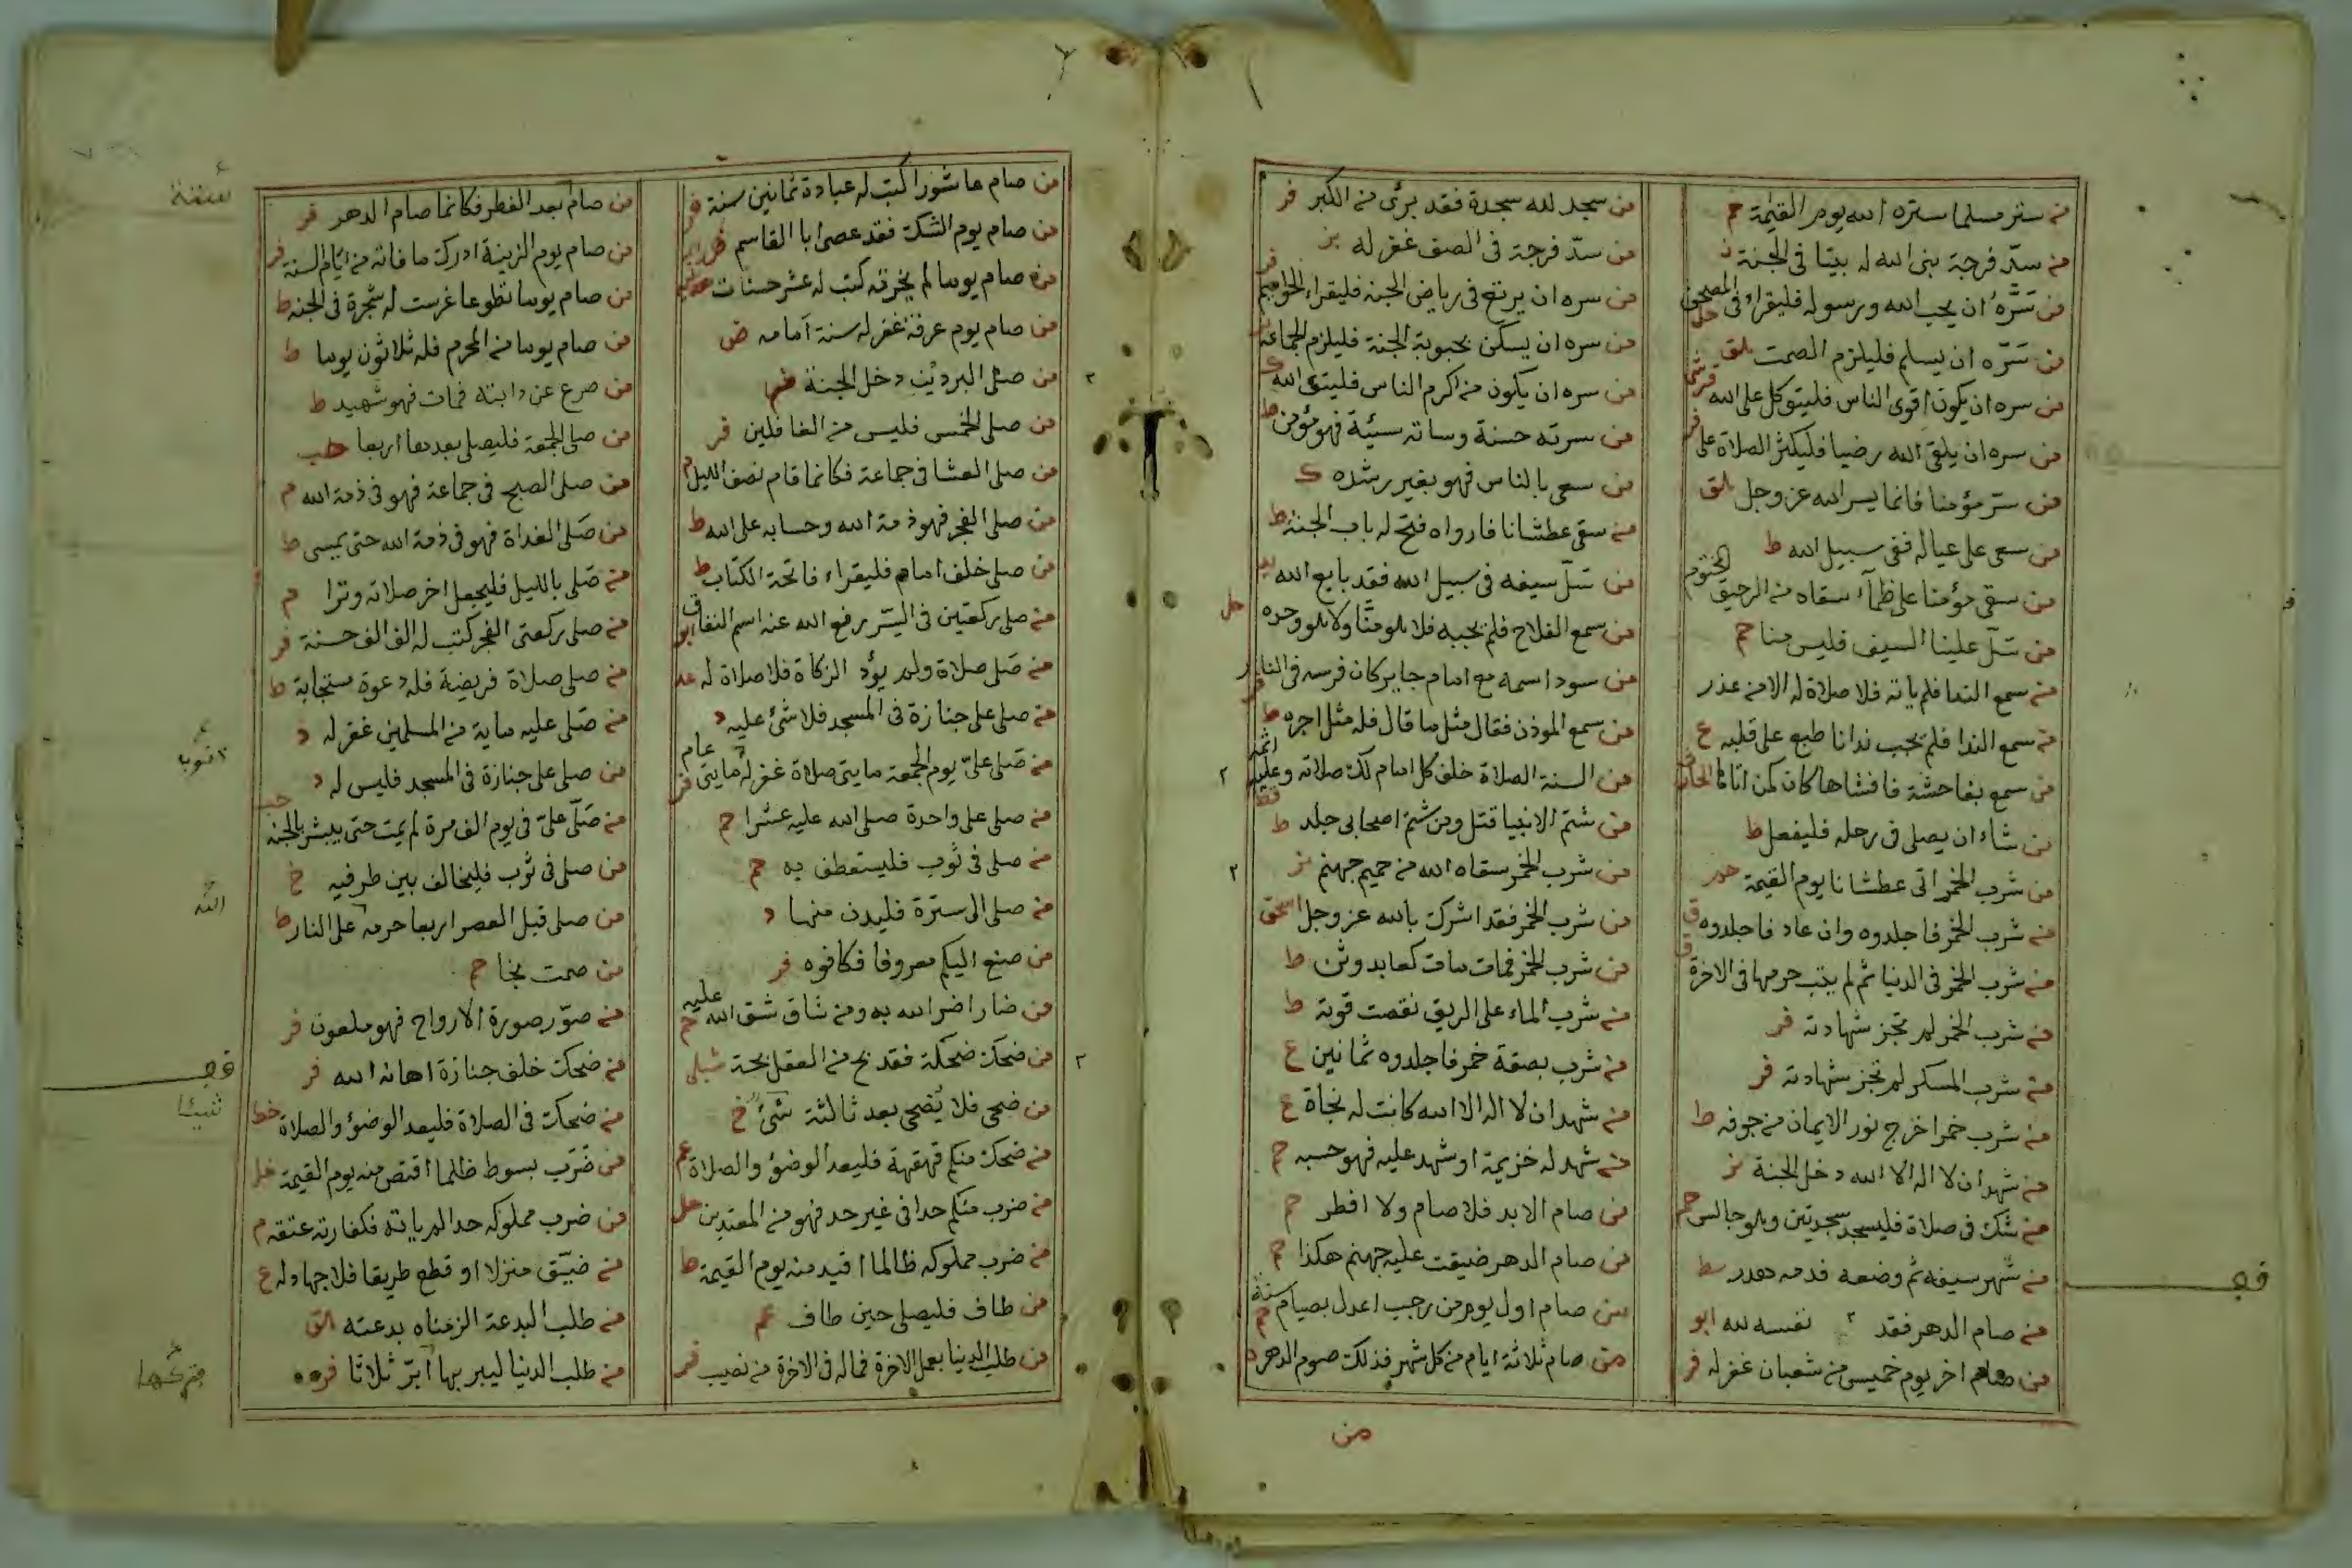 من ستر مسلما ستره الله يوم القيمة حم
من سدّ فرجة بنى الله له بيتا في الجنة
من سَرَّه ان يحب الله ورسوله فليقراء في المصحف حل
من سَرّه ان يسلم فليلزم الصمت
من سره ان يكون اقوى الناس فليتوكل على الله
من سره ان يلقى الله رضيا فليكثر الصلاة على فر
من سرّ مؤمنا فانما يسر الله عز وجل
من سعى على عياله ففي سبيل الله ط
من سقى مؤمنا على ظمآء سقاه من الرحيق المختوم
من سلّ علينا السيف فليس منا حم
من سمع الندا فلم ياته فلا صلاة له الا من عذر
من سمع الندا فلم يجب ندانا طبع على قلبه ع
من سمع بفاحشة فافشاها كان كمن اتاها
من شاء ان يصلي في رحله فليفعل ط
من شرب الخمر اتى عطشانا يوم القيمة
من شرب الخمر فاجلدوه وان عاد فاجلدوه ق
من شرب الخمر في الدنيا ثم لم يتب حرمها في الاخرة ق
من شرب الخمر لم تجز شهادته فر
من شرب المسكر لم تجز شهادته فر
من شرب خمرا خرج نور الايمان من جوفه ط
من شهد ان لا اله الا الله دخل الجنة بز
من شك في صلاة فليسجد سجدتين وهو جالس حم
من شهر سيفه ثم وضعه فدمه هدر
من صام الدهر فقد نفسه لله ابو
من صام اخر يوم خميس من شعبان غفر له فر
من سجد لله سجدة فقد برئ من الكبر فر
من سدّ فرجة في الصف غفر له بز
من سره ان يرتع في رياض الجنة فليقراء الحواميم
من سره ان يسكن بحبوبة الجنة فليلزم الجماعة
من سره ان يكون من اكرم الناس فليتق الله
من سرته حسنة وساته سيئة فهو مؤمن ط
من سعى بالناس فهو بغير رشده ك
من سقى عطشانا فارواه فتح له باب الجنة ط
من سَلّ سيفه في سبيل الله فقد بايع الله
من سمع الفلاح فلم يجبه فلا هو منّا ولا هو وحده حل
من سود اسمه مع امام جاير كان فرسه في النار
من سمع الموذن فقال مثل ما قال فله مثل اجره ط
من السنة الصلاة خلف كل امام لك صلاته وعليه اثمه
من شتم الانبيا قتل ومن شتم اصحابي جلد ط
من شرب الخمر سقاه الله من حميم جهنم بز
من شرب الخمر فقد اشرك بالله عز وجل
من شرب الخمر فمات مات كعابد وثن ط
من شرب الماء على الريق نقصت قوته ط
من شرب بصقة خمر فاجلدوه ثمانين ع
من شهد ان لا اله الا الله كانت له نجاة ع
من شهد له خزيمة او شهد عليه فهو حسبه حم
من صام الابد فلا صام ولا افطر حم
من صام الدهر ضيقت عليه جهنم هكذا حم
من صام اول يوم من رجب اعدل بصيام سنة
من صام ثلاثة ايام من كل شهر فذلك صوم الدهر
من
من صام عاشورا كتب له عبادة ثمانين سنة فر
من صام يوم الشك فقد عصى ابا القاسم
من صام يوما لم يخرقه كتب له عشر حسنات
من صام يوم عرفة غفر له سنة امامه ض
من صلى البردين دخل الجنة
من صلى الخمس فليس من الغافلين فر
من صلى العشا في جماعة فكانما قام نصف الليل م
من صلى الفجر فهو ذمة الله وحسابه على الله ط
من صلى خلف امام فليقراء فاتحة الكتاب ط
من صلى ركعتين في السّر رفع الله عنه اسم النفاق ابو
من صَلى صلاة ولم يؤد الزكاة فلا صلاة له
من صلى على جنازة في المسجد فلا شئ عليه د
من صَلى علىّ يوم الجمعة مايتي صلاة غفر له مايتي عام فر
من صلى على واحدة صلى الله عليه عشرا حم
من صلى في ثوب فليستعطف به حم
من صلى الى سترة فليدن منها د
من صنع اليكم معروفا فكافوه فر
من ضار اضر الله به ومن شاق شق الله عليه حم
من ضحك ضحكة فقد مج من العقل مجة
من ضحى فلا يُضحى بعد ثالثة شئ خ
من ضحك منكم قهقهة فليعد الوضؤ والصلاة
من ضرب منكم حدا في غير حد فهو من المعتدين حل
من ضرب مملوكه ظالما اقيد منه يوم القيمة ط
من طاف فليصلي حين طاف
من طلب الدنيا بعمل الاخرة فماله في الاخرة من نصيب فر
من صام بعد الفطر فكانما صام الدهر فر
من صام يوم الزينة ادرك ما فاته من ايام السنة فر
من صام يوما تطوعا غرست له شجرة في الجنة ط
من صام يوما من المحرم فله ثلاثون يوما ط
من صرع عن دابته فمات فهو شهيد ط
من صلى الجمعة فليصلي بعدها اربعا حب
من صلى الصبح في جماعة فهو في ذمة الله م
من صَلى الغداة فهو في ذمة الله حتى يمسى ط
من صَلى بالليل فليجعل اخر صلاته وترا م
من صلى ركعتي الفجر كتب له الف الف حسنة فر
من صلى صلاة فريضة فله دعوة مستجابة ط
من صَلى عليه ماية من المسلمين غفر له د
من صلى على جنازة في المسجد فليس له د
من صَلّى علىّ في يوم الف مرة لم يمت حتى يبشر بالجنة
من صلى في ثوب فليخالف بين طرفيه خ
من صلى قبل العصر اربعا حرمه على النار ط
من صمت نجا حم
من صوّر صورة الارواح فهو ملعون فر
من ضحك خلف جنازة اهانه الله فر
من ضحك في الصلاة فليعد الوضؤ والصلاة خط
من ضَرَب بسوط ظلما اقتص منه يوم القيمة
من ضرب مملوكه حدا لم ياته فكفارته عتقه م
من ضيّق منزلا او قطع طريقا فلا جهاد له ع
من طلب البدعة الزمناه بدعته
من طلب الدنيا ليبر بها ابرّ ثلاثا فر
ثوب
الله